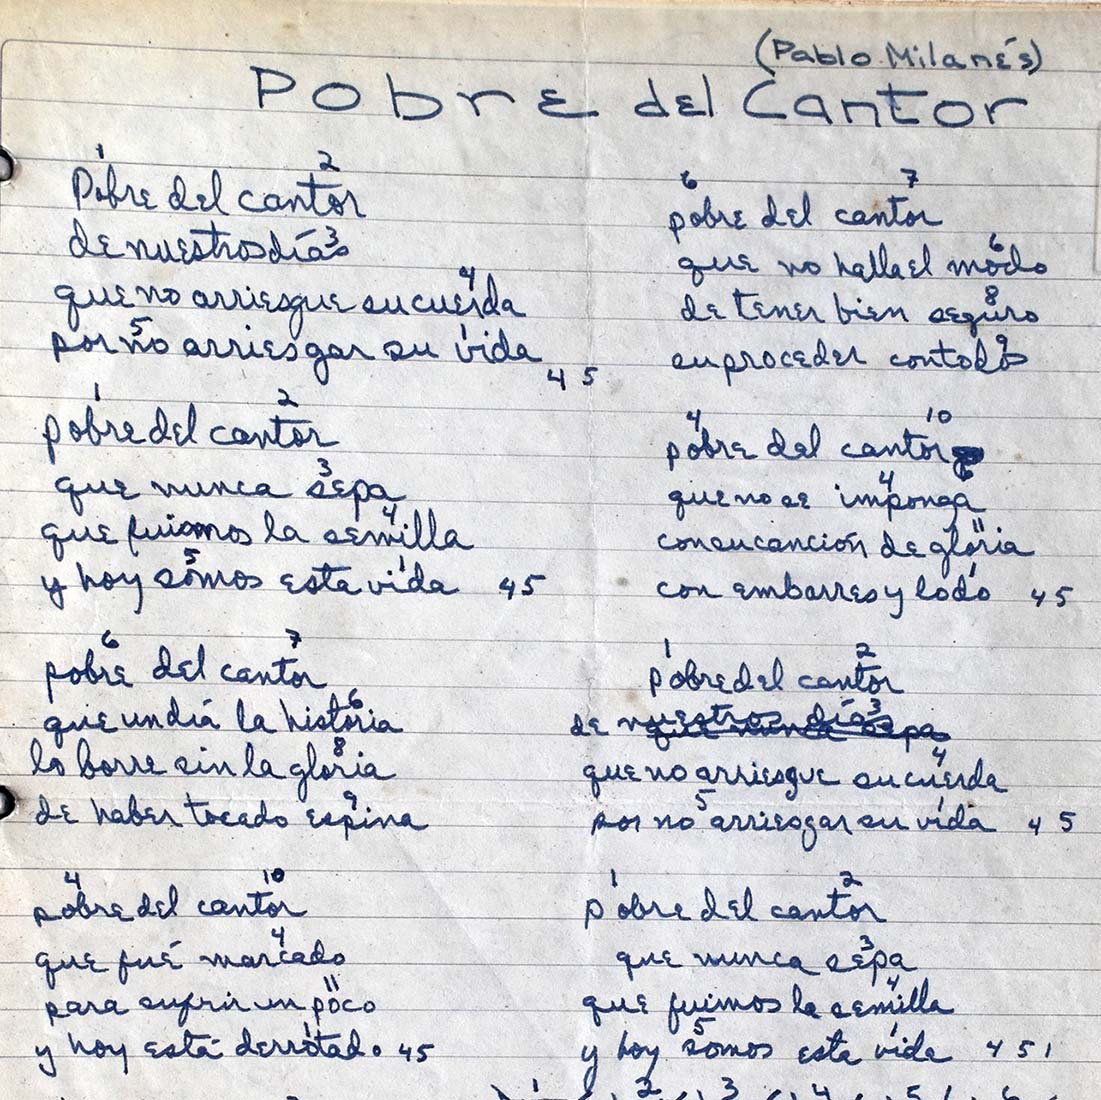 (Pablo Milanés)
Pobre del Cantor
1 2
Pobre del cantor
3
de nuestros días
4
que no arriesgue su cuerda
5 1
por no arriesgar su vida
4 5
1 2
pobre del cantor
3
que nunca sepa
4
que fuimos la semilla
5 1
y hoy somos esta vida 4 5
6 7
pobre del cantor
6
que un día la historia
8
lo borre sin la gloria
9
de haber tocado espina
4 10
pobre del cantor
4
que fué marcado
11
para sufrir un poco
1
y hoy está derrotado 4 5
6 7
pobre del cantor
6
que no halla el modo
8
de tener bien seguro
9
su proceder con todos
4 10
pobre del cantor
4
que no se imponga
11
con su canción de gloria
1
con embarres y lodo 4 5
1 2
pobre del cantor
3
de nuestros días
que nunca sepa
4
que no arriesgue su cuerda
5 1
por no arriesgar su vida 4 5
1 2
pobre del cantor
3
que nunca sepa
4
que fuimos la semilla
5 1
y hoy somos esta vida 4 5 1
1 2 3 4 5 6